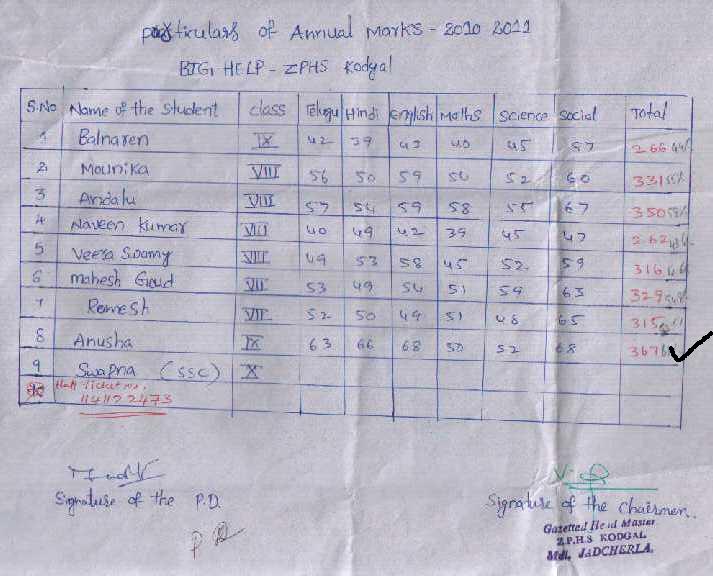 Particulars of Annual Marks - 2010 2011
BIG HELP - ZPHS Kodgal
S.No Name of the Student class Telugu Hindi English Maths Science Social Total
1 Balnaren IX 42 39 43 40 45 57 266
2 Mounika VIII 56 50 59 54 52 60 331
3 Andalu VIII 57 54 59 58 55 67 350
4 Naveen Kumar VIII 40 49 42 39 45 47 262
5 Veera Swamy VIII 49 53 58 45 52 59 316
6 Mahesh Goud VII 53 49 54 51 59 63 329
7 Ramesh VII 52 50 49 51 48 65 315
8 Anusha IX 63 66 68 50 52 68 367
9 Swapna (SSC) X
Hall Ticket No.
1141122473
Signature of the P.D.
Signature of the Chairmen.
P D
Gazetted Head Master
Z.P.H.S KODGAL
Mdl, JADCHERLA.